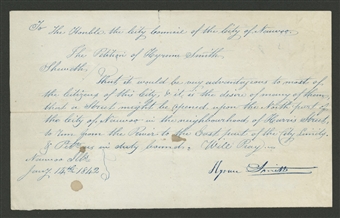 To The Honble. the City Council of the City of Nauvoo.
The Petition of Hyrum Smith.
Sheweth,
That it would be very advantageous to most of
the Citizens of this City, & it is the desire of many of them
that a Street might be opened upon the North part of
the City of Nauvoo in the neighbourhood of Harris Street,
to run from the River to the East part of the City Limits,
& Petrs. as in duty bound, Will Pray—
Nauvoo Ills.
Jany. 14th. 1842
Hyrum Smith